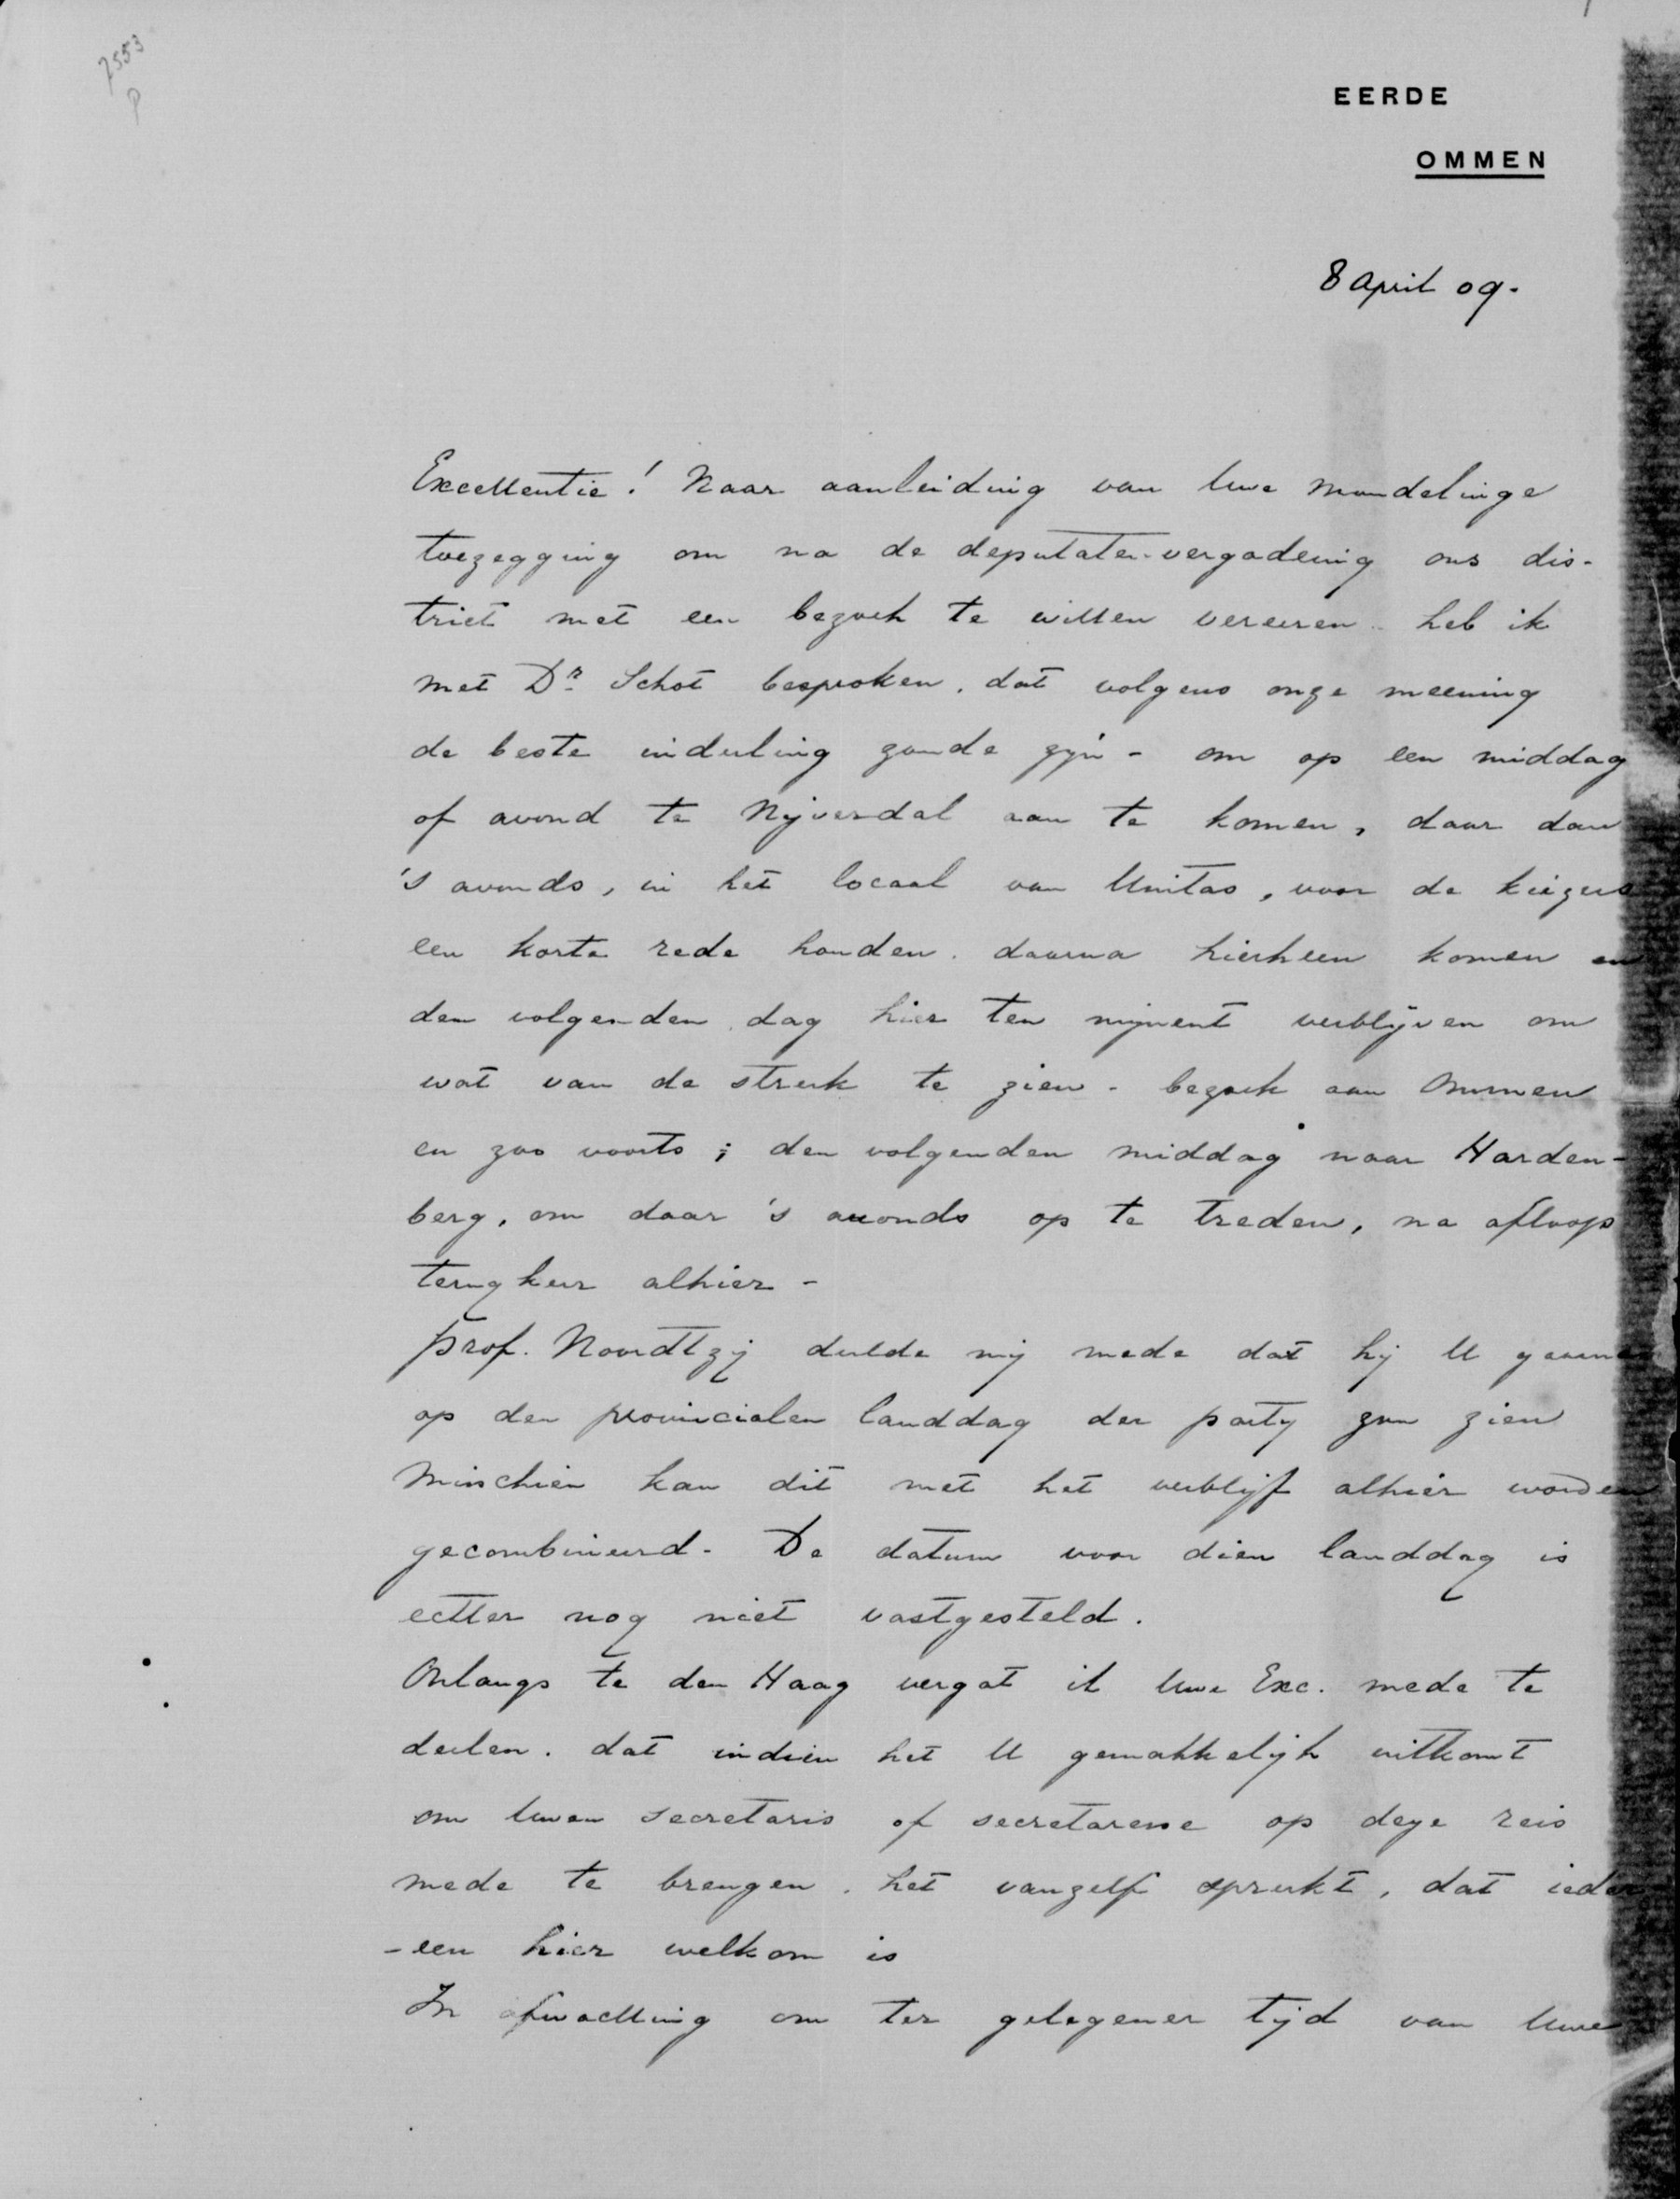 7553
P
EERDE
OMMEN
8 April 09.
Excellentie! Naar aanleiding van Uwe mondelinge
toezegging om na de deputaten-vergadering ons dis-
trict met een bezoek te willen vereeren heb ik
met Dr. Schot besproken, dat volgens onze meening
de beste indeeling zoude zijn - om op een middag
of avond te Nijverdal aan te komen, daar dan
's avonds, in het locaal van Unitas, voor de kiezers
een korte rede houden, daarna hierheen komen en
den volgenden dag hier ten mijnent verblijven om
wat van de streek te zien - bezoek aan Ommen
en zoo voorts; den volgenden middag naar Harden-
berg, om daar 's avonds op te treden, na afloop
terugkeer alhier -
Prof. Noordtzij deelde mij mede dat hij U gaarne
op den provincialen landdag der partij zou zien
Misschien kan dit met het verblijf alhier worden
gecombineerd. De datum voor dien landdag is
echter nog niet vastgesteld.
Onlangs te den Haag vergat ik Uwe Exc. mede te
deelen, dat indien het U gemakkelijk uitkomt
om Uwen secretaris of secretaresse op deze reis
mede te brengen, het vanzelf spreekt, dat ieder
-een hier welkom is
In afwachting om ter gelegener tijd van Uwe